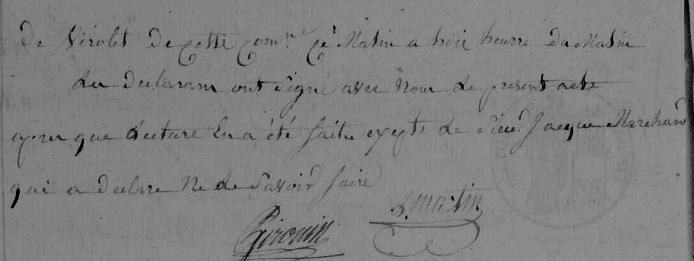 de Virolet de Cette Com.ne Ce Matin a troie heurre du Matin
du declarant ont Signé avec Nous de present acte
apres que lecture En a été faite excepte de Sieur Jacque Marchand
qui a declare Ne de Savoir faire
Girouin J. martin